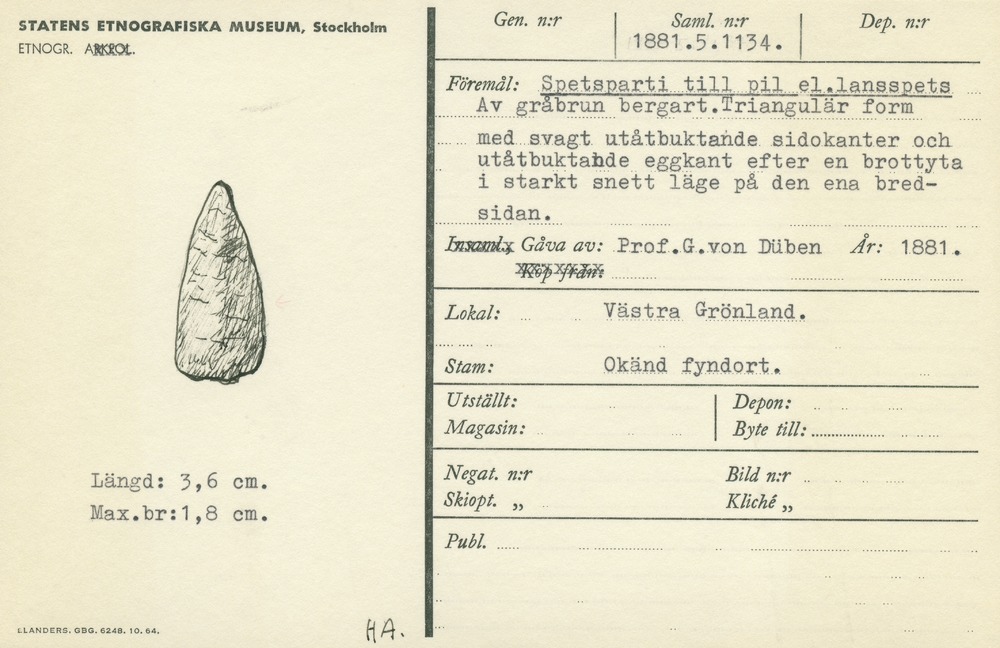 STATENS ETNOGRAFISKA MUSEUM, Stockholm
ETNOGR. ARKEOL.
Gen. n:r
Saml. n:r
1881.5.1134.
Dep. n:r
Föremål: Spetsparti till pil el.lansspets
Av gråbrun bergart.Triangulär form
med svagt utåtbuktande sidokanter och
utåtbuktande eggkant efter en brottyta
i starkt snett läge på den ena bred-
sidan.
Insaml. Gåva av: Prof.G.von Düben År: 1881.
Köp från:
Lokal: Västra Grönland.
Stam: Okänd fyndort.
Utställt:
Magasin:
Depon:
Byte till:
Negat. n:r
Skiopt. „
Bild n:r
Kliché „
Publ.
Längd: 3,6 cm.
Max.br:1,8 cm.
ELANDERS. GBG. 6248. 10. 64.
HA.